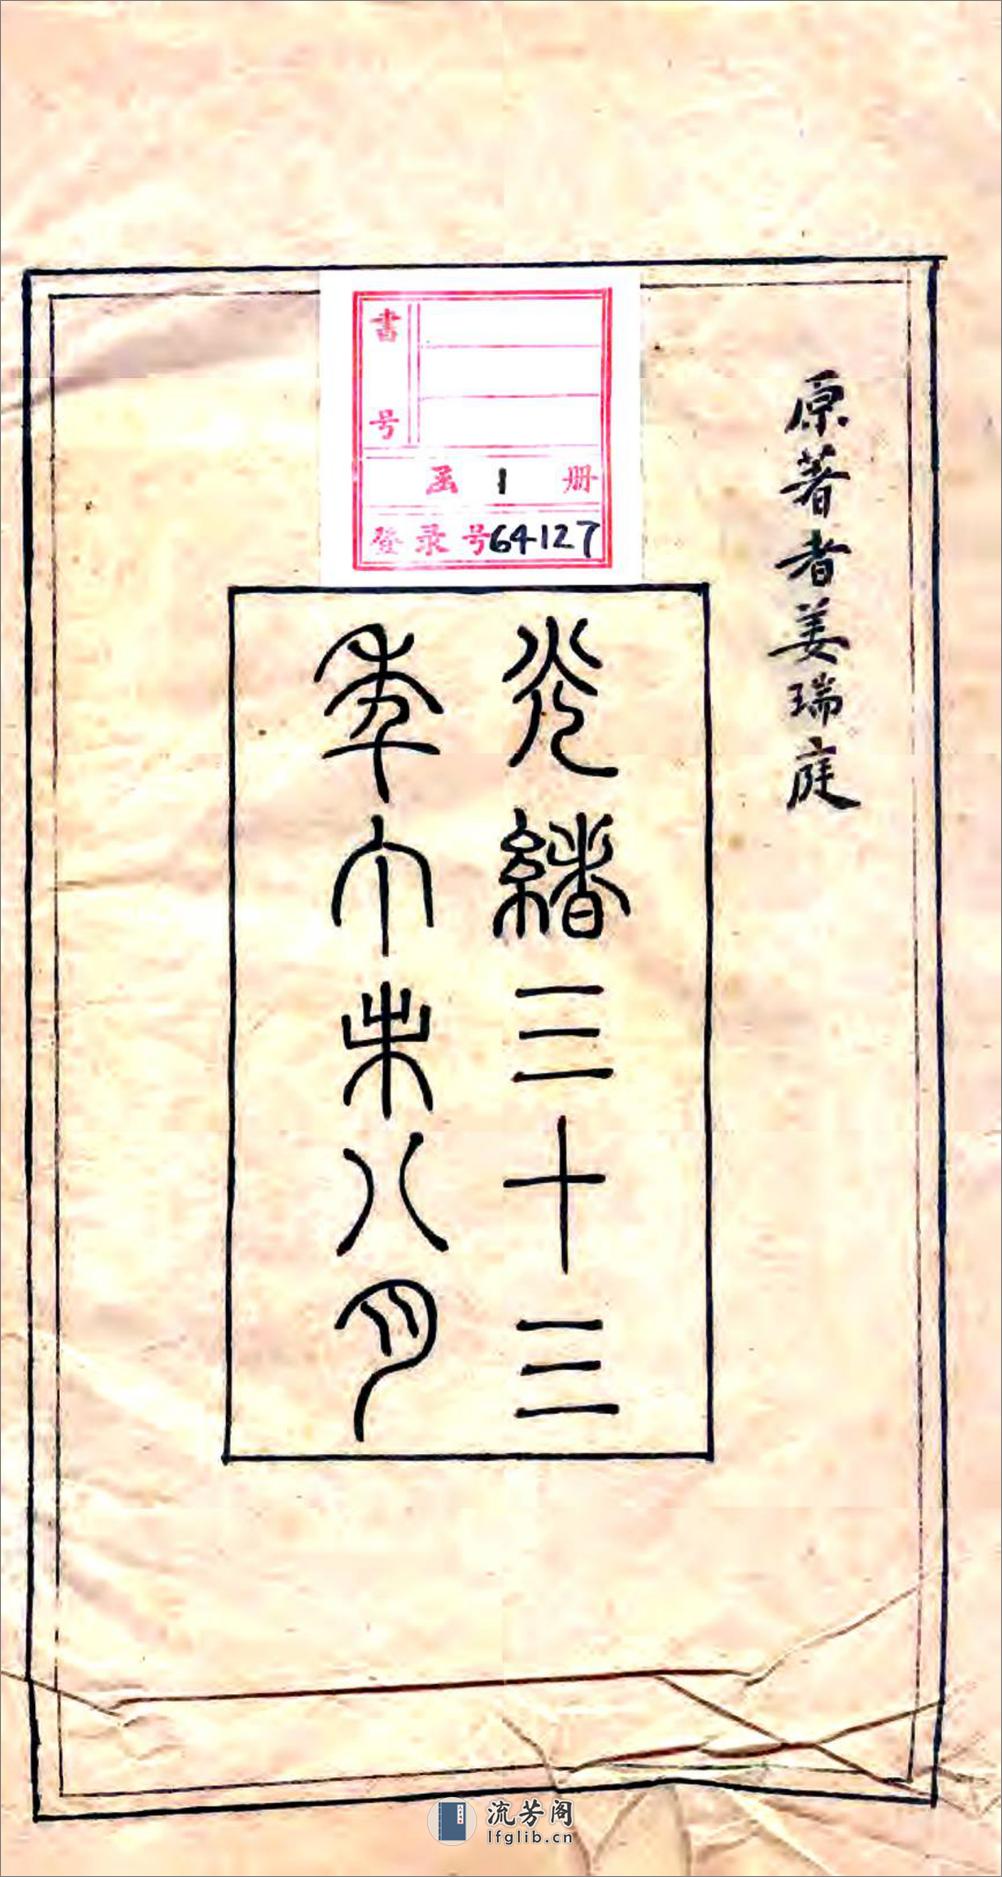 原著者姜瑞庭
書号
函 1 册
登录号64127
光緒三十三
年丁未八月
流芳阁
lfglib.cn